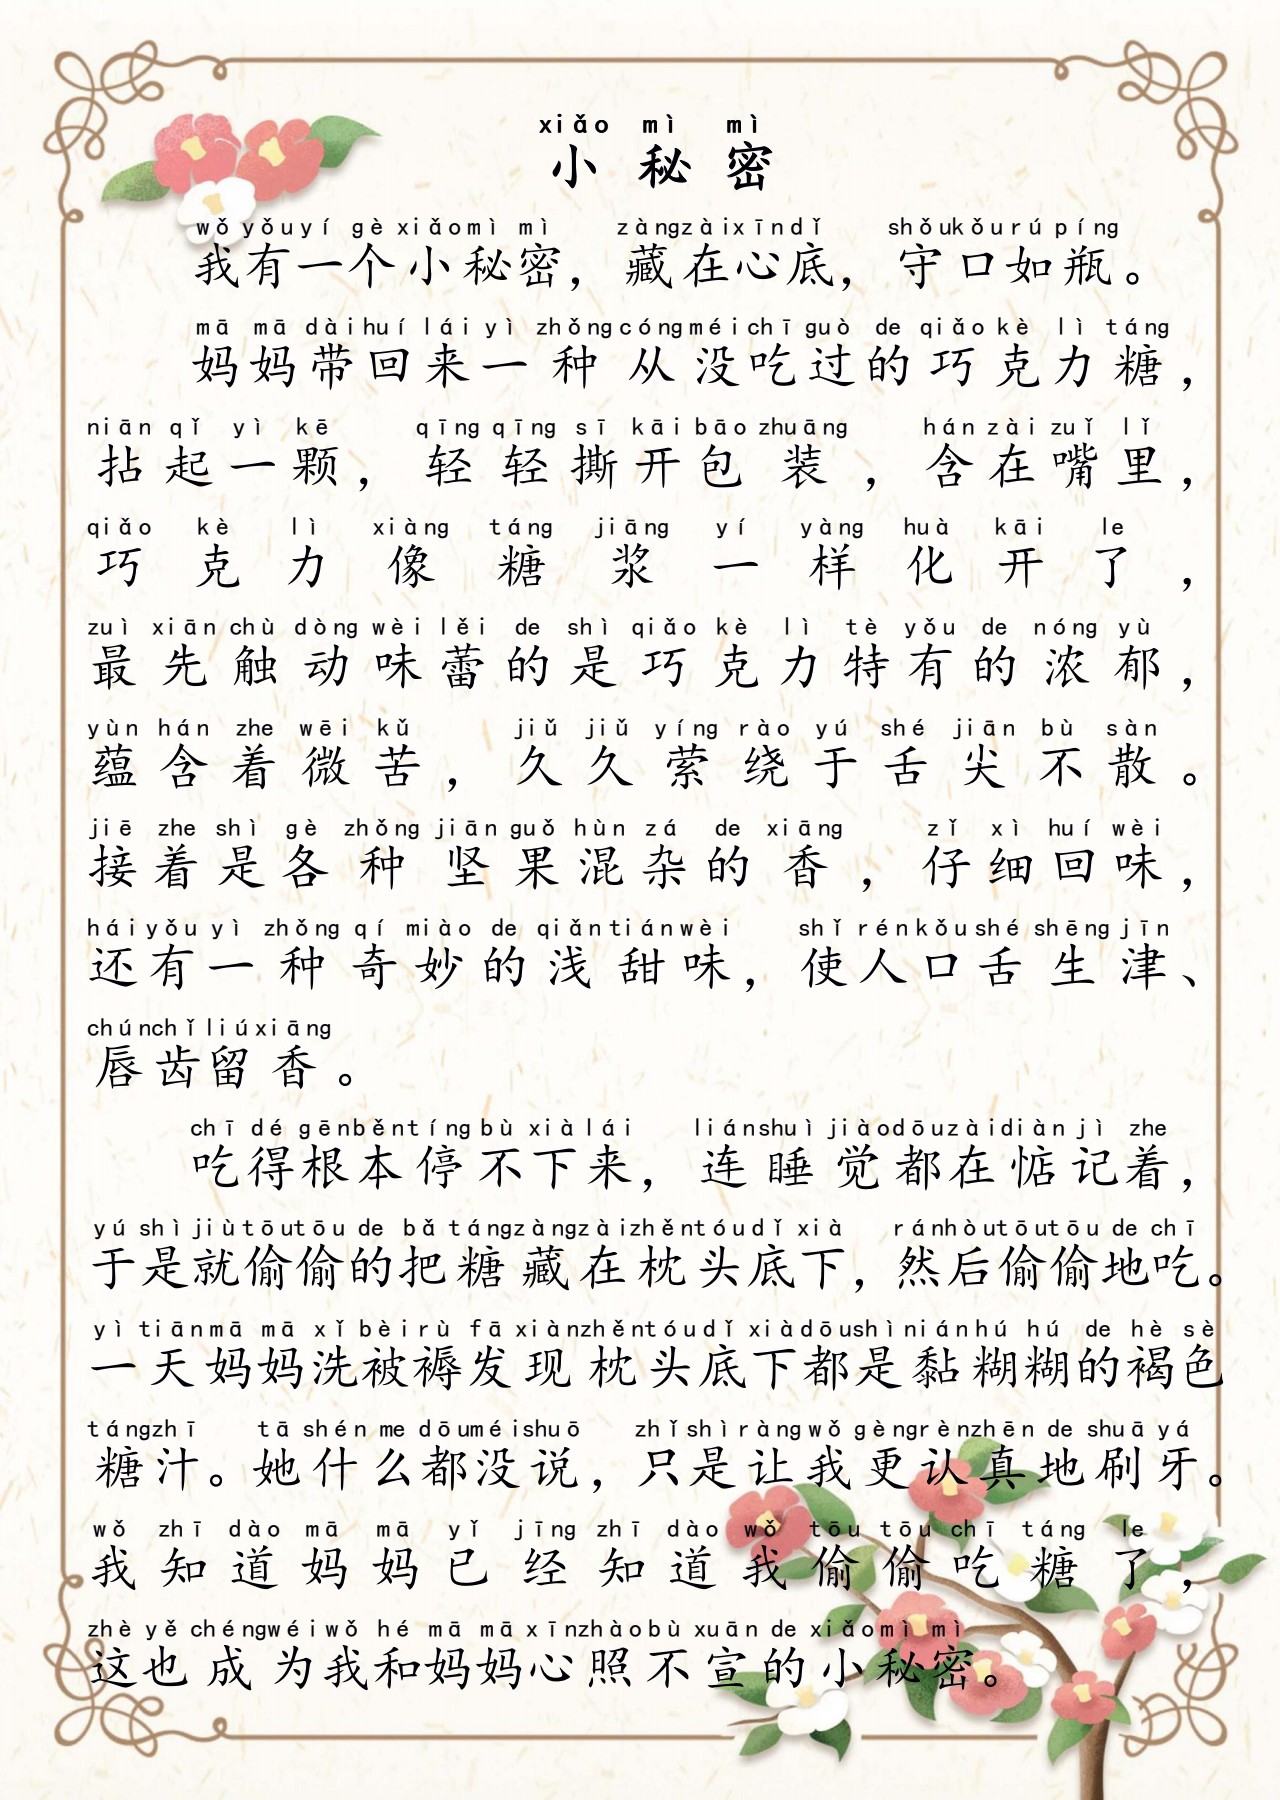 xiǎo mì mì
小秘密
wǒ yǒu yí gè xiǎo mì mì zàng zài xīn dǐ shǒu kǒu rú píng
我有一个小秘密，藏在心底，守口如瓶。
mā mā dài huí lái yì zhǒng cóng méi chī guò de qiǎo kè lì táng
妈妈带回来一种从没吃过的巧克力糖，
niān qǐ yì kē qīng qīng sī kāi bāo zhuāng hán zài zuǐ lǐ
拈起一颗，轻轻撕开包装，含在嘴里，
qiǎo kè lì xiàng táng jiāng yí yàng huà kāi le
巧克力像糖浆一样化开了，
zuì xiān chù dòng wèi lěi de shì qiǎo kè lì tè yǒu de nóng yù
最先触动味蕾的是巧克力特有的浓郁，
yùn hán zhe wēi kǔ jiǔ jiǔ yíng rào yú shé jiān bù sàn
蕴含着微苦，久久萦绕于舌尖不散。
jiē zhe shì gè zhǒng jiān guǒ hùn zá de xiāng zǐ xì huí wèi
接着是各种坚果混杂的香，仔细回味，
hái yǒu yì zhǒng qí miào de qiǎn tián wèi shǐ rén kǒu shé shēng jīn
还有一种奇妙的浅甜味，使人口舌生津、
chún chǐ liú xiāng
唇齿留香。
chī dé gēn běn tíng bù xià lái lián shuì jiào dōu zài diàn jì zhe
吃得根本停不下来，连睡觉都在惦记着，
yú shì jiù tōu tōu de bǎ táng zàng zài zhěn tóu dǐ xià rán hòu tōu tōu de chī
于是就偷偷的把糖藏在枕头底下，然后偷偷地吃。
yì tiān mā mā xǐ bèi rù fā xiàn zhěn tóu dǐ xià dōu shì nián hú hú de hè sè
一天妈妈洗被褥发现枕头底下都是黏糊糊的褐色
táng zhī tā shén me dōu méi shuō zhǐ shì ràng wǒ gèng rèn zhēn de shuā yá
糖汁。她什么都没说，只是让我更认真地刷牙。
wǒ zhī dào mā mā yǐ jīng zhī dào wǒ tōu tōu chī táng le
我知道妈妈已经知道我偷偷吃糖了，
zhè yě chéng wéi wǒ hé mā mā xīn zhào bù xuān de xiǎo mì mì
这也成为我和妈妈心照不宣的小秘密。